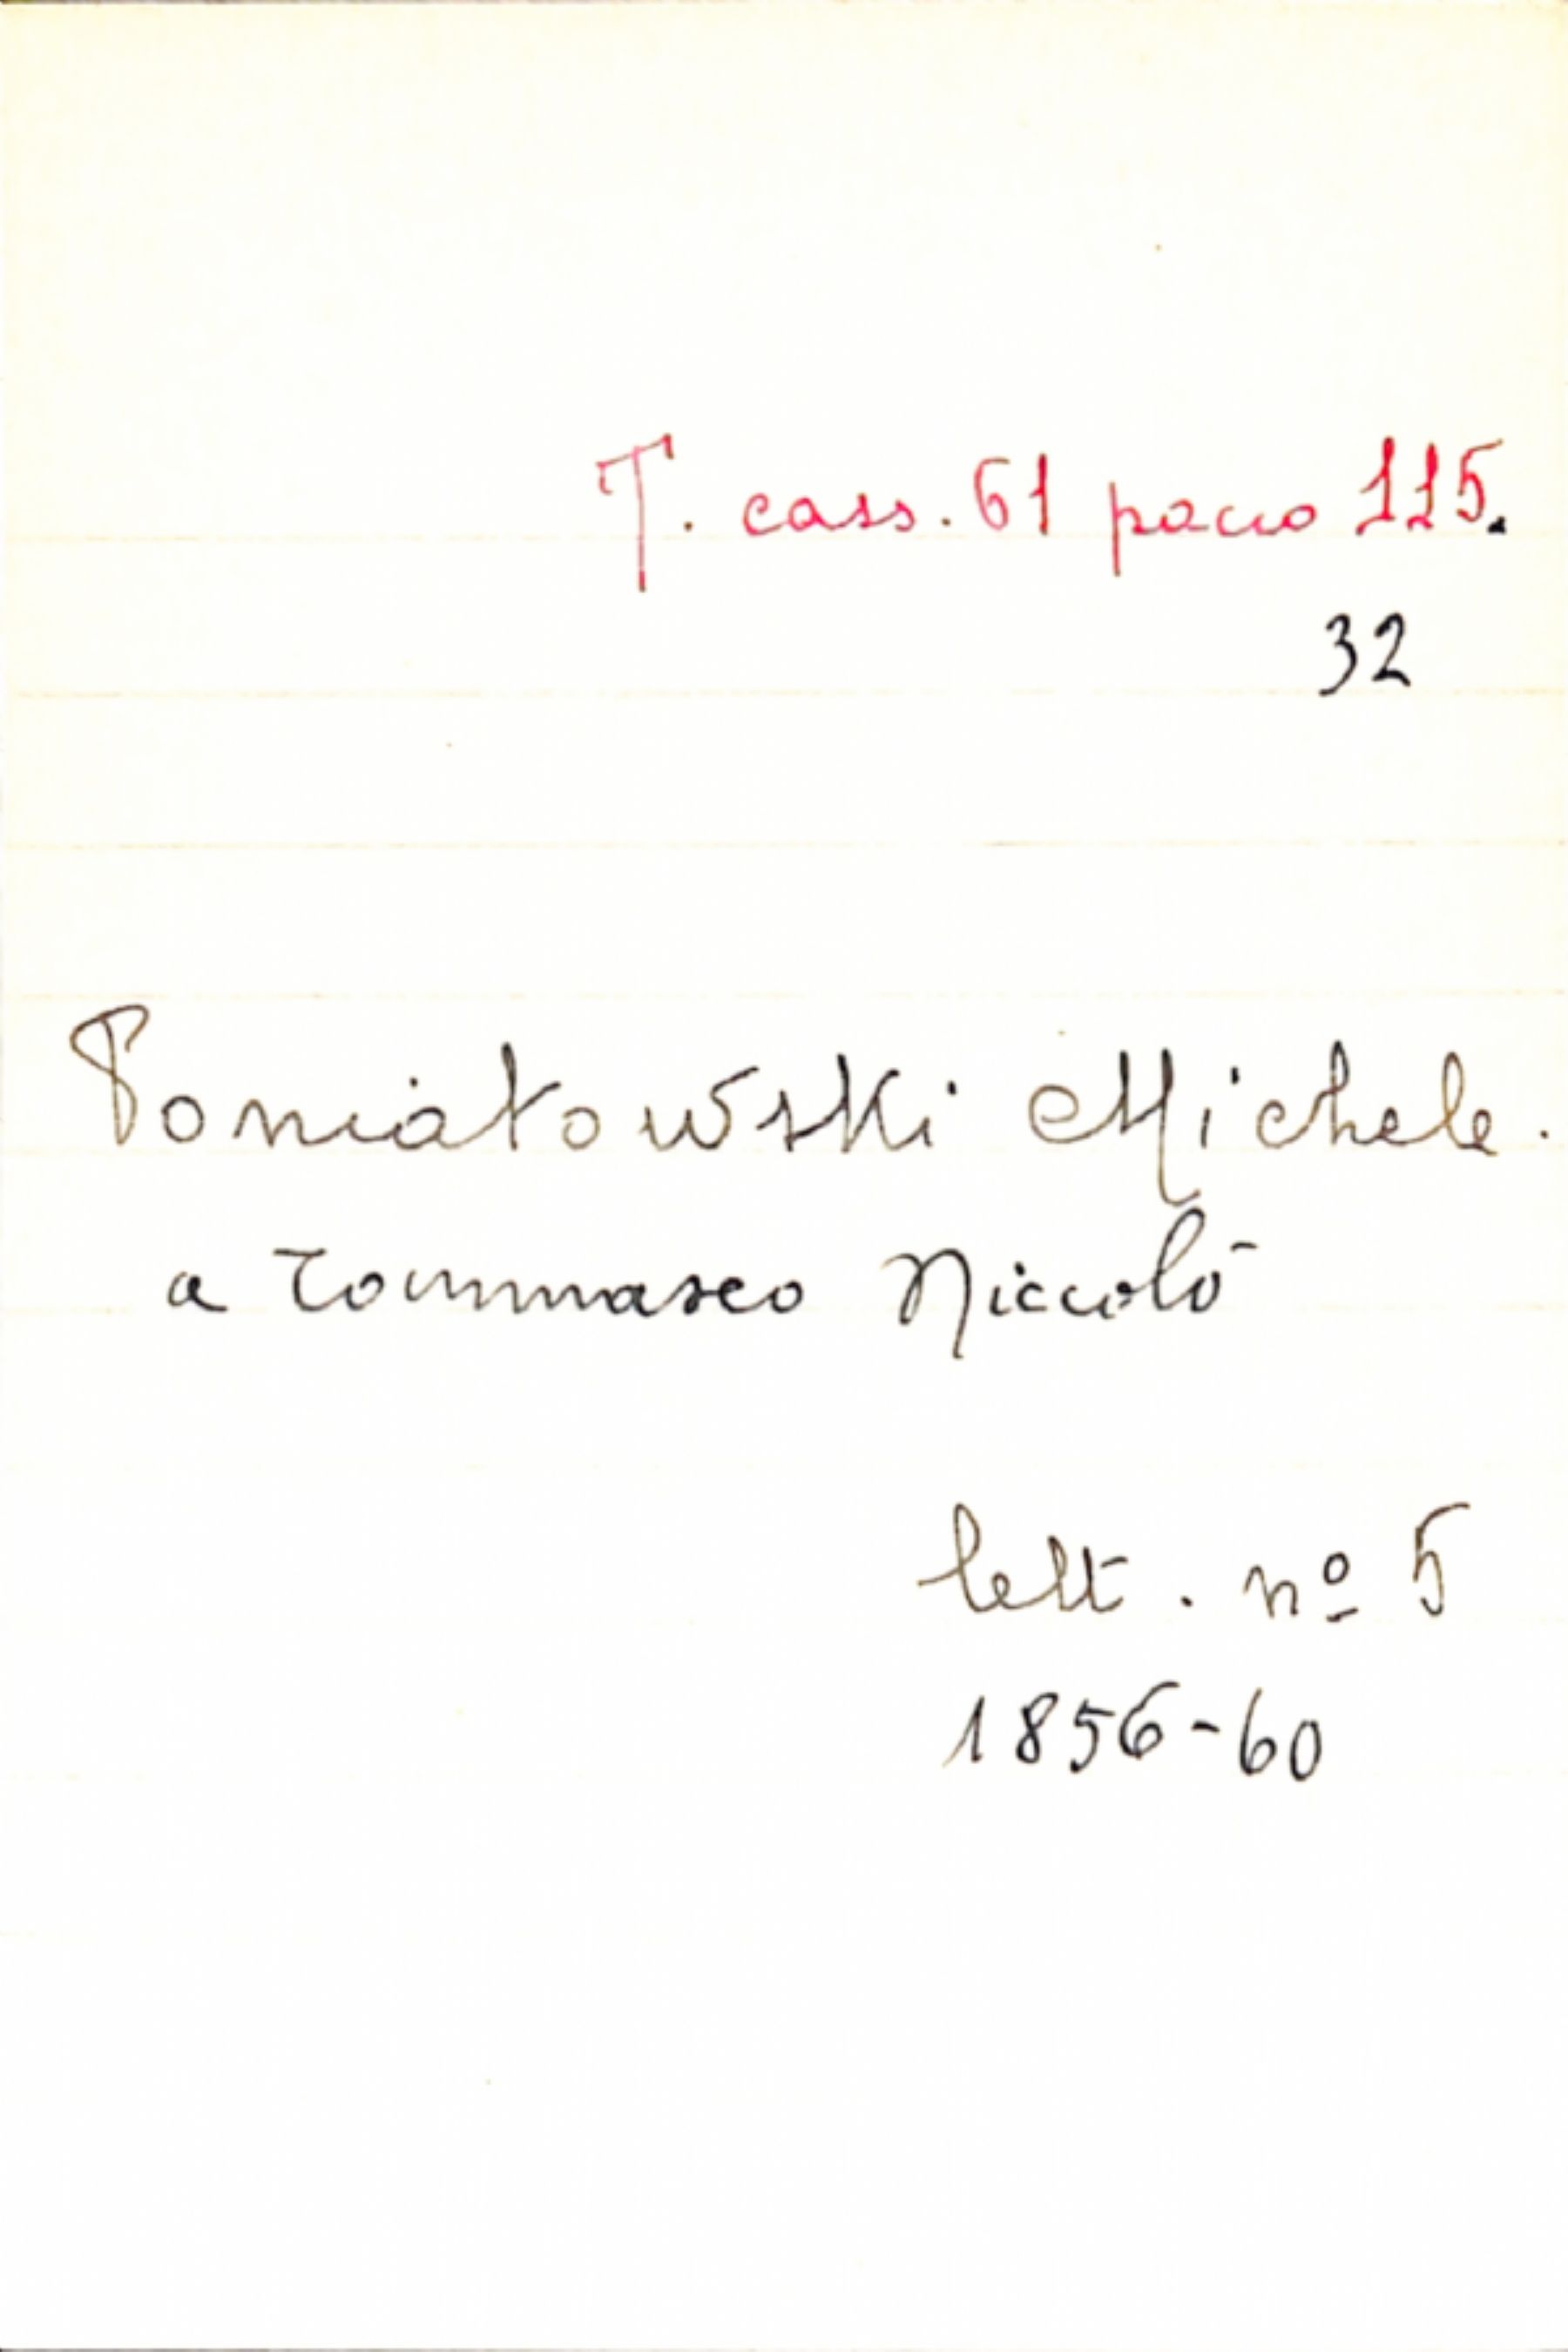 T. cass. 61 pacco 115.
32
Poniatowski Michele.
a Tommaseo Niccolò
lett. nº 5
1856-60